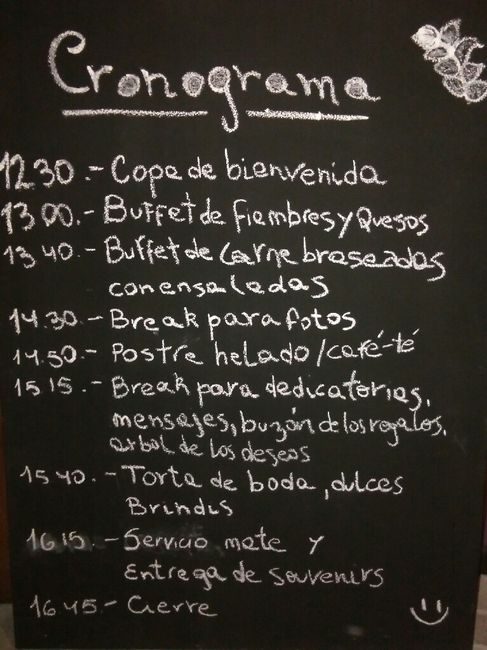 Cronograma
12.30.- Copa de bienvenida
13 00.- Buffet de fiambres y Quesos
13 40.- Buffet de carne braseadas
con ensaladas
14.30- Break para fotos
14.50- Postre helado/café-té
15 15.- Break para dedicatorias,
mensajes, buzón de los regalos,
arbol de los deseos
15 40.- Torta de boda, dulces
Brindis
16 15.- Servicio mate y
Entrega de souvenirs
16.45- Cierre